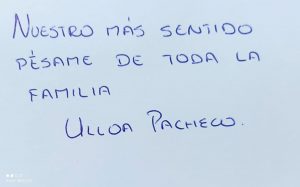 NUESTRO MÁS SENTIDO
PÉSAME DE TODA LA
FAMILIA
ULLOA PACHECO.